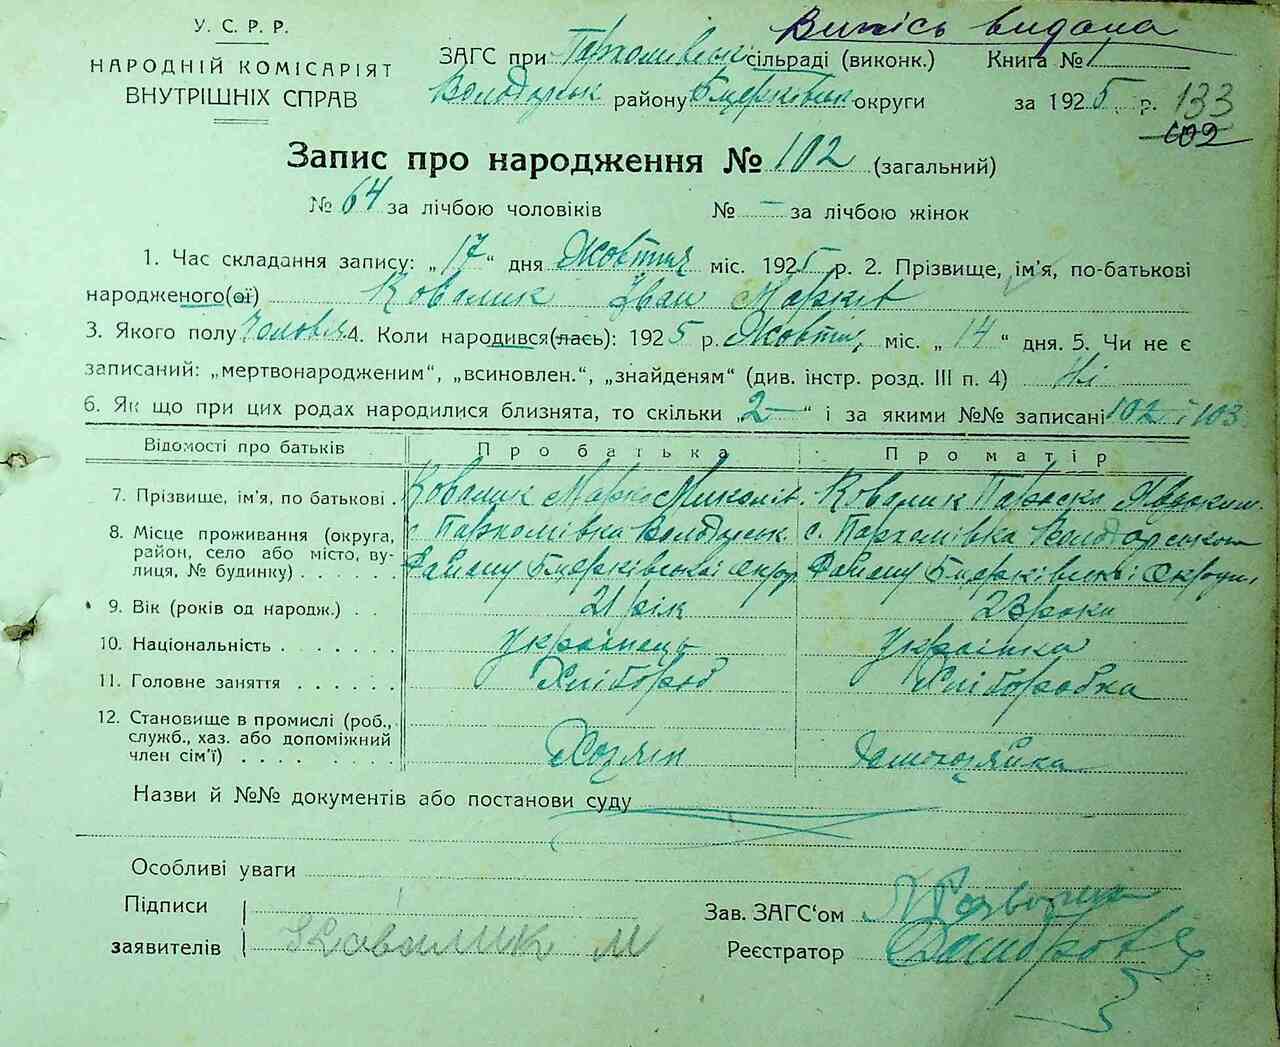 Випісь видана
У. С. Р. Р.
НАРОДНІЙ КОМІСАРІЯТ
ВНУТРІШНІХ СПРАВ
ЗАГС при Пархомівськ сільраді (виконк.) Книга № 1
Володарськ району Б.Церківськ округи за 1925 р. 133
102
Запис про народження № 102 (загальний)
№ 64 за лічбою чоловіків № — за лічбою жінок
1. Час складання запису: „17“ дня Жовтня міс. 1925 р. 2. Прізвище, ім'я, по-батькові
народженого(ої) Ковалик Іван Марків
3. Якого полу Чоловіч 4. Коли народився(лась): 1925 р. Жовтня міс. „14“ дня. 5. Чи не є
записаний: „мертвонародженим“, „всиновлен.“, „знайденям“ (див. інстр. розд. III п. 4) Ні
6. Як що при цих родах народилися близнята, то скільки „2—“ і за якими №№ записані 102 і 103
Відомості про батьків Про батька Про матір
7. Прізвище, ім'я, по батькові . Ковалик Марко Миколів. Ковалик Параска
8. Місце проживання (округа, с. Пархомівка Володарськ. с. Пархомівка Володарського
район, село або місто, ву-
лиця, № будинку) . . . . . . Району Б.Церківської округ Району Б.Церківської Округи
9. Вік (років од народж.) . . 21 рік 23 роки
10. Національність . . . . . . Українець Українка
11. Головне заняття . . . . . . Хлібороб Хліборобка
12. Становище в промислі (роб.,
служб., хаз. або допоміжний
член сім'ї) . . . . . . . Хозяін Домохозяйка
Назви й №№ документів або постанови суду
Особливі уваги
Підписи
заявителів Ковалик М
Зав. ЗАГС‘ом
Реєстратор